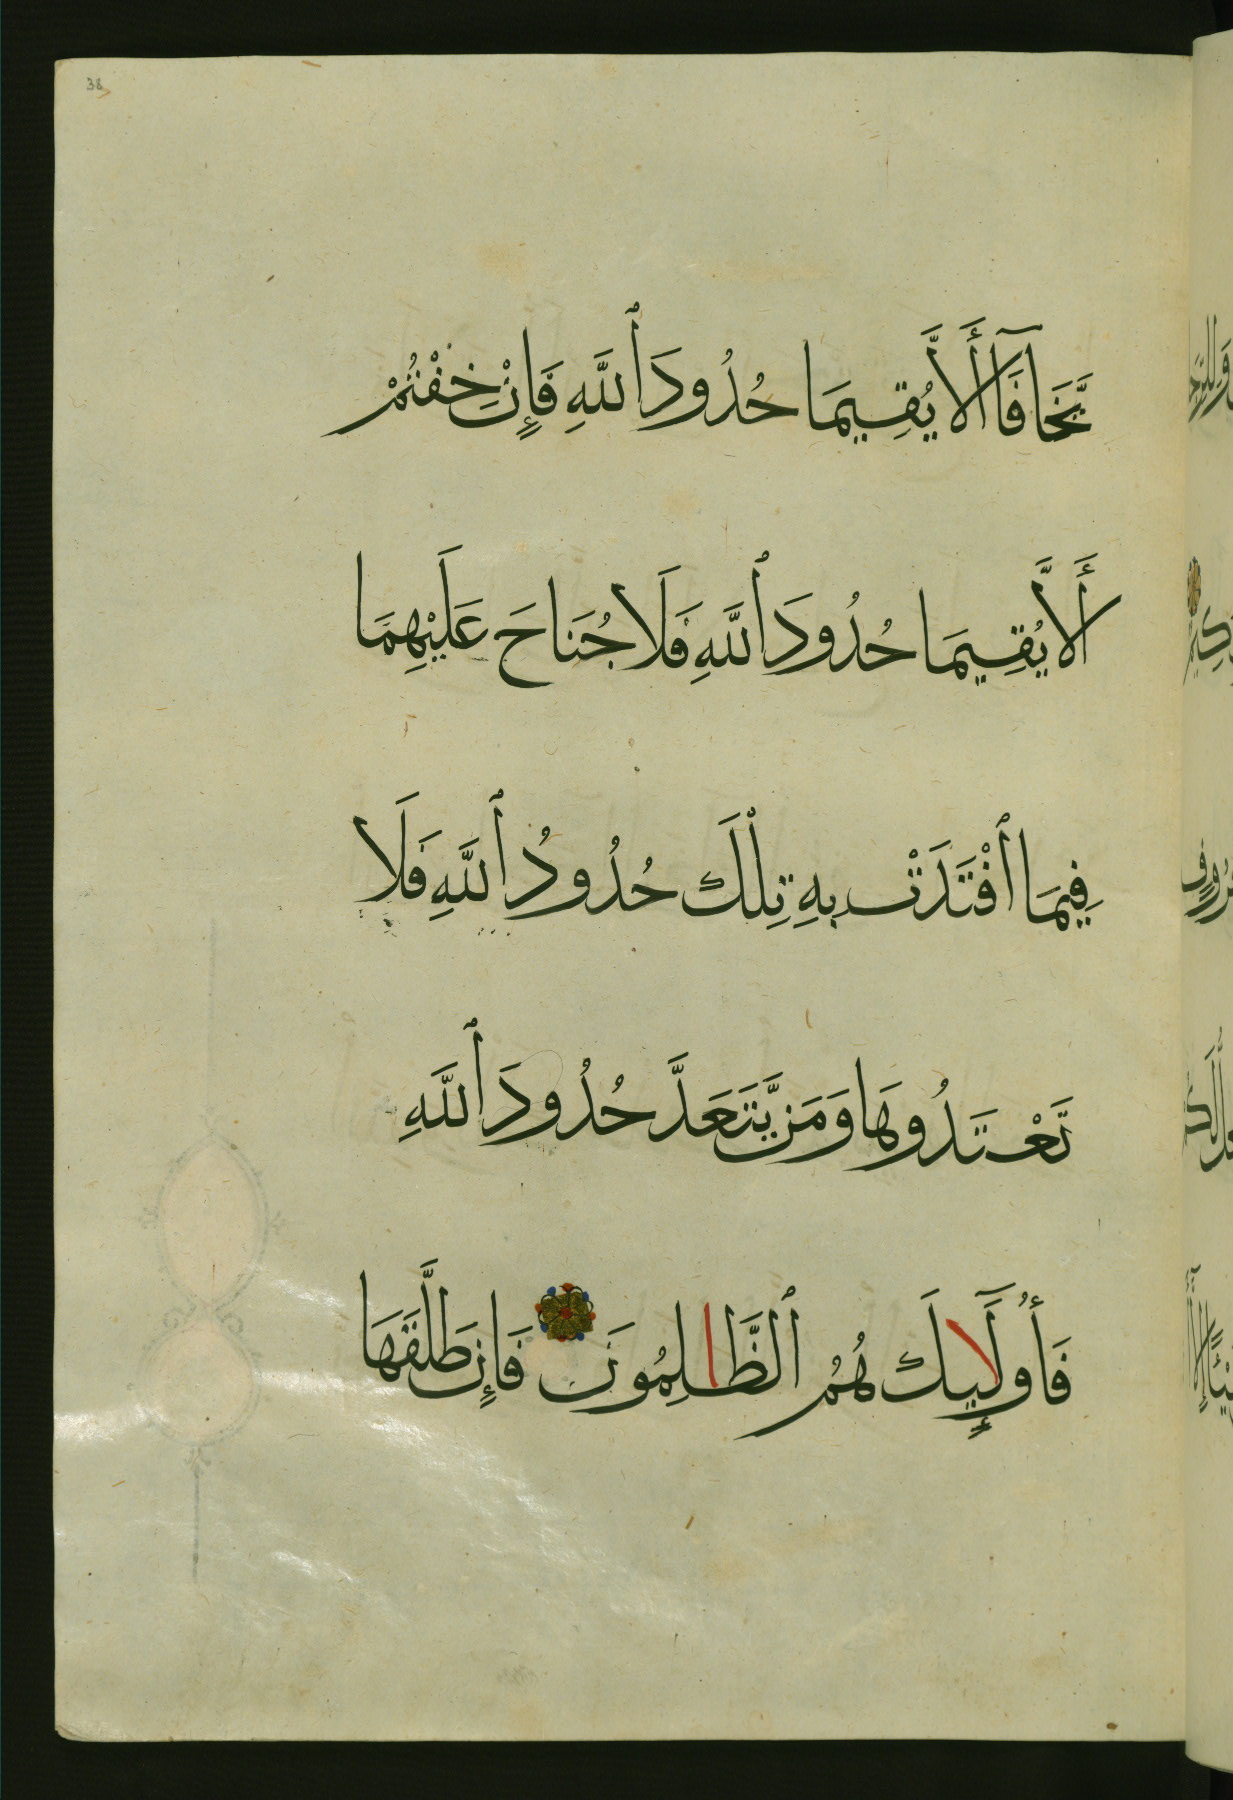 38
يَّخَافَآ أَلَّا يُقِيمَا حُدُودَ ٱللَّهِ فَإِنْ خِفْتُمْ
أَلَّا يُقِيمَا حُدُودَ ٱللَّهِ فَلَا جُنَاحَ عَلَيْهِمَا
فِيمَا ٱفْتَدَتْ بِهِ تِلْكَ حُدُودُ ٱللَّهِ فَلَا
تَعْتَدُوهَا وَمَن يَّتَعَدَّ حُدُودَ ٱللَّهِ
فَأُولَٰٓئِكَ هُمُ ٱلظَّالِمُونَ فَإِن طَلَّقَهَا